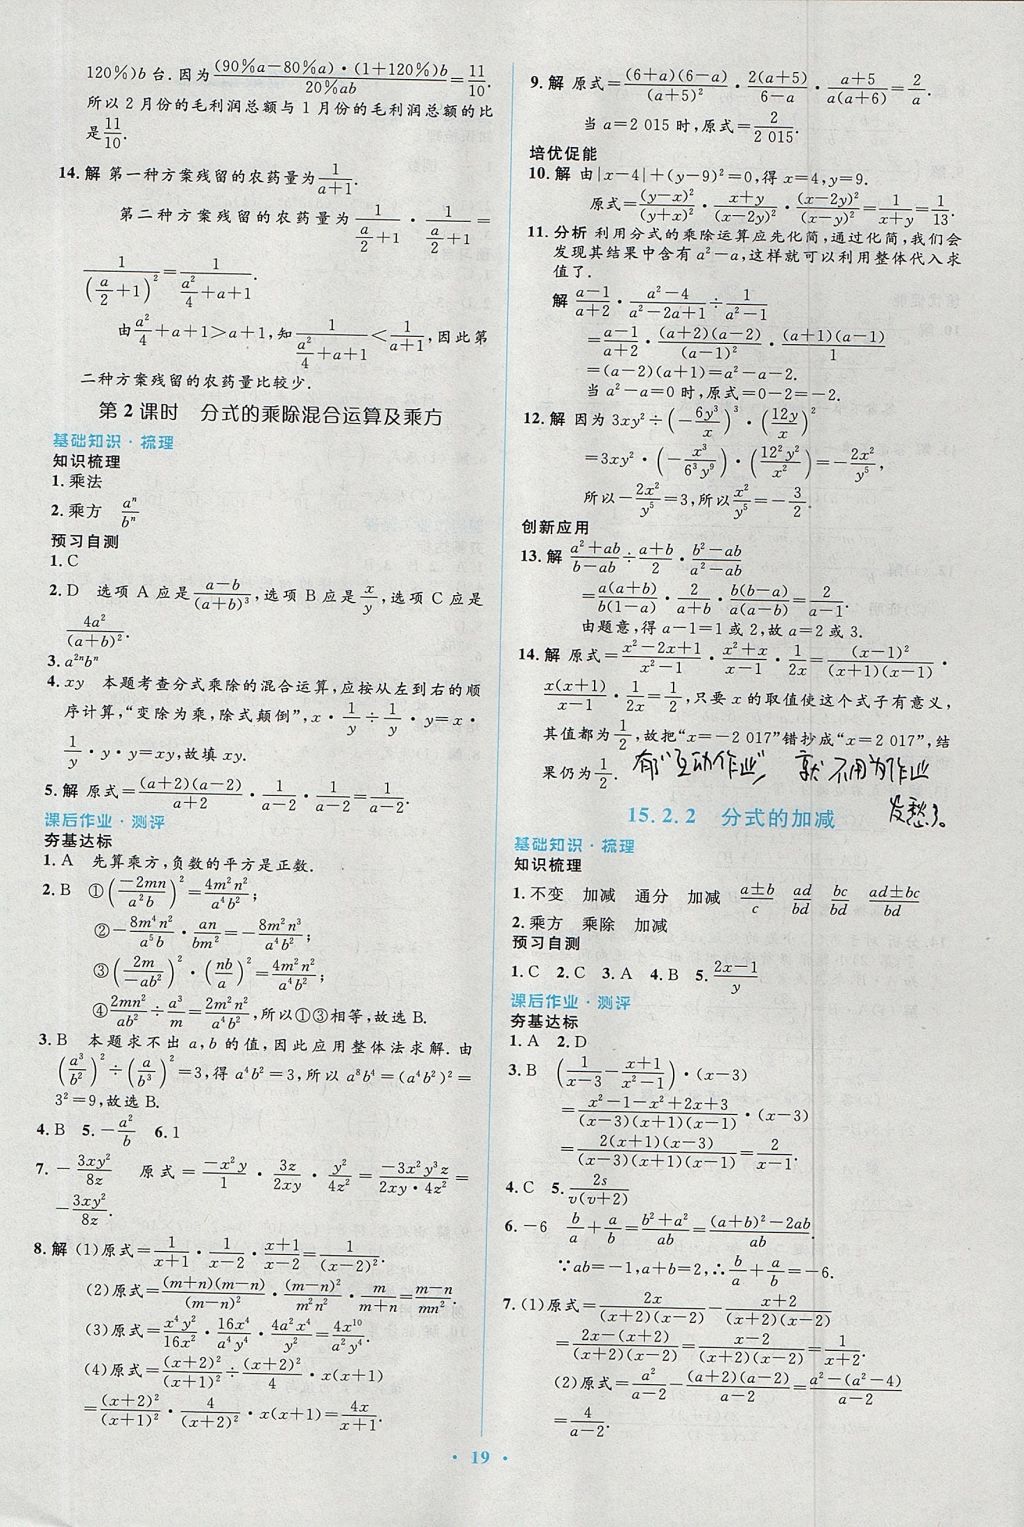 120%)b 台.因为$\frac{(90\%a-80\%a)·(1+120\%)b}{20\%ab}=\frac{11}{10}$.
所以 2 月份的毛利润总额与 1 月份的毛利润总额的比
是$\frac{11}{10}$.
14.解 第一种方案残留的农药量为$\frac{1}{a+1}$.
第二种方案残留的农药量为$\frac{1}{\frac{a}{2}+1}·\frac{1}{\frac{a}{2}+1}=$
$\frac{1}{(\frac{a}{2}+1)^2}=\frac{1}{\frac{a^2}{4}+a+1}$.
由$\frac{a^2}{4}+a+1>a+1$,知$\frac{1}{\frac{a^2}{4}+a+1}<\frac{1}{a+1}$,因此第
二种方案残留的农药量比较少.
第 2 课时 分式的乘除混合运算及乘方
基础知识·梳理
知识梳理
1.乘法
2.乘方 $\frac{a^n}{b^n}$
预习自测
1.C
2.D 选项 A 应是$\frac{a-b}{(a+b)^3}$,选项 B 应是$\frac{x}{y}$,选项 C 应是
$\frac{4a^2}{(a+b)^2}$.
3.$a^{2n}b^n$
4.xy 本题考查分式乘除的混合运算,应按从左到右的顺
序计算,“变除为乘,除式颠倒”,$x·\frac{1}{y}÷\frac{1}{y}·y=x·$
$\frac{1}{y}·y·y=xy$,故填 xy.
5.解 原式=$\frac{(a+2)(a-2)}{a+2}·\frac{1}{a-2}·\frac{1}{a-2}=\frac{1}{a-2}$.
课后作业·测评
夯基达标
1.A 先算乘方,负数的平方是正数.
2.B ①$(\frac{-2mn}{a^2b})^2=\frac{4m^2n^2}{a^4b^2}$;
②$-\frac{8m^4n^2}{a^5b}·\frac{an}{bm^2}=-\frac{8m^2n^3}{a^4b^2}$;
③$(\frac{2m}{-ab^2})^2·(\frac{nb}{a})^2=\frac{4m^2n^2}{a^4b^2}$;
④$\frac{2mn^2}{ab^2}÷\frac{a^3}{m}=\frac{2m^2n^2}{a^4b^2}$,所以①③相等,故选 B.
3.B 本题求不出 a,b 的值,因此应用整体法求解.由
$(\frac{a^3}{b^2})^2÷(\frac{a}{b^3})^2=3$,得 $a^4b^2=3$,所以 $a^8b^4=(a^4b^2)^2=$
$3^2=9$,故选 B.
4.B 5.$-\frac{a^2}{b}$ 6.1
7.$-\frac{3xy^2}{8z}$ 原式=$\frac{-x^2y}{1}·\frac{3z}{2xy}·\frac{y^2}{4z^2}=\frac{-3x^2y^3z}{2xy·4z^2}=$
$-\frac{3xy^2}{8z}$.
8.解 (1)原式=$\frac{1}{x+1}·\frac{1}{x-2}·\frac{x+1}{x-2}=\frac{1}{(x-2)^2}$.
(2)原式=$\frac{(m+n)(m-n)}{(m-n)^2}·\frac{(m-n)^2}{m^2n^2}·\frac{m}{m+n}=\frac{m-n}{mn^2}$.
(3)原式=$\frac{x^4y^2}{16x^2}·\frac{16x^4}{a^4y^4}·\frac{4a^2x^4}{y^2}=\frac{4x^{10}}{a^2y^4}$.
(4)原式=$\frac{(x+2)^2}{(x+1)^2}÷\frac{(x+2)^2}{4}·x(x+1)$
=$\frac{(x+2)^2}{(x+1)^2}·\frac{4}{(x+2)^2}·x(x+1)=\frac{4x}{x+1}$.
9.解 原式=$\frac{(6+a)(6-a)}{(a+5)^2}·\frac{2(a+5)}{6-a}·\frac{a+5}{a(a+6)}=\frac{2}{a}$.
当 a=2 015 时,原式=$\frac{2}{2\ 015}$.
培优促能
10.解 由$|x-4|+(y-9)^2=0$,得 x=4,y=9.
原式=$\frac{(y-x)^2}{(y+x)^2}·\frac{x+y}{(x-2y)^2}·\frac{(x-2y)^2}{(x-y)^2}=\frac{1}{x+y}=\frac{1}{13}$.
11.分析 利用分式的乘除运算应先化简,通过化简,我们会
发现其结果中含有 $a^2-a$,这样就可以利用整体代入求
值了.
解 $\frac{a-1}{a+2}·\frac{a^2-4}{a^2-2a+1}÷\frac{1}{a^2-1}$
=$\frac{a-1}{a+2}·\frac{(a+2)(a-2)}{(a-1)^2}·\frac{(a+1)(a-1)}{1}$
=(a-2)(a+1)=$a^2-a-2$.
当 $a^2-a=0$ 时,原式=0-2=-2.
12.解 因为 $3xy^2÷(-\frac{6y^3}{x})^3·(\frac{12y}{x^2})^2$
=$3xy^2·(-\frac{x^3}{6^3y^9})·(\frac{12^2y^2}{x^4})=-\frac{2x^2}{y^5}$,
所以$-\frac{2x^2}{y^5}=3$,所以$\frac{x^2}{y^5}=-\frac{3}{2}$.
创新应用
13.解 $\frac{a^2+ab}{b-ab}÷\frac{a+b}{2}·\frac{b^2-ab}{a^2-ab}$
=$\frac{a(a+b)}{b(1-a)}·\frac{2}{a+b}·\frac{b(b-a)}{a(a-b)}=\frac{2}{a-1}$.
由题意,得 a-1=1 或 2,故 a=2 或 3.
14.解 原式=$\frac{x^2-2x+1}{x^2-1}·\frac{x^2+x}{x-1}·\frac{1}{2x}=\frac{(x-1)^2}{(x+1)(x-1)}·$
$\frac{x(x+1)}{x-1}·\frac{1}{2x}=\frac{1}{2}$,只要 x 的取值使这个式子有意义,
其值都为$\frac{1}{2}$,故把“x=-2 017”错抄成“x=2 017”,结
果仍为$\frac{1}{2}$. 有“互动作业” 就不用为作业
发愁了。
15.2.2 分式的加减
基础知识·梳理
知识梳理
1.不变 加减 通分 加减 $\frac{a±b}{c}$ $\frac{ad}{bd}$ $\frac{bc}{bd}$ $\frac{ad±bc}{bd}$
2.乘方 乘除 加减
预习自测
1.C 2.C 3.A 4.B 5.$\frac{2x-1}{y}$
课后作业·测评
夯基达标
1.A 2.D
3.B $(\frac{1}{x-3}-\frac{x+1}{x^2-1})·(x-3)$
=$\frac{x^2-1-x^2+2x+3}{(x-3)(x+1)(x-1)}·(x-3)$
=$\frac{2(x+1)(x-3)}{(x-3)(x+1)(x-1)}=\frac{2}{x-1}$.
4.C 5.$\frac{2s}{v(v+2)}$
6.-6 $\frac{b}{a}+\frac{a}{b}=\frac{b^2+a^2}{ab}=\frac{(a+b)^2-2ab}{ab}$.
∵ab=-1,a+b=2,∴$\frac{b}{a}+\frac{a}{b}=-6$.
7.(1)原式=$\frac{2x}{(x+2)(x-2)}-\frac{x+2}{(x+2)(x-2)}$
=$\frac{2x-(x+2)}{(x+2)(x-2)}=\frac{x-2}{(x+2)(x-2)}=\frac{1}{x+2}$.
(2)原式=$\frac{a^2}{a-2}-\frac{(a+2)(a-2)}{a-2}=\frac{a^2-(a^2-4)}{a-2}$
=$\frac{4}{a-2}$.
· 19 ·